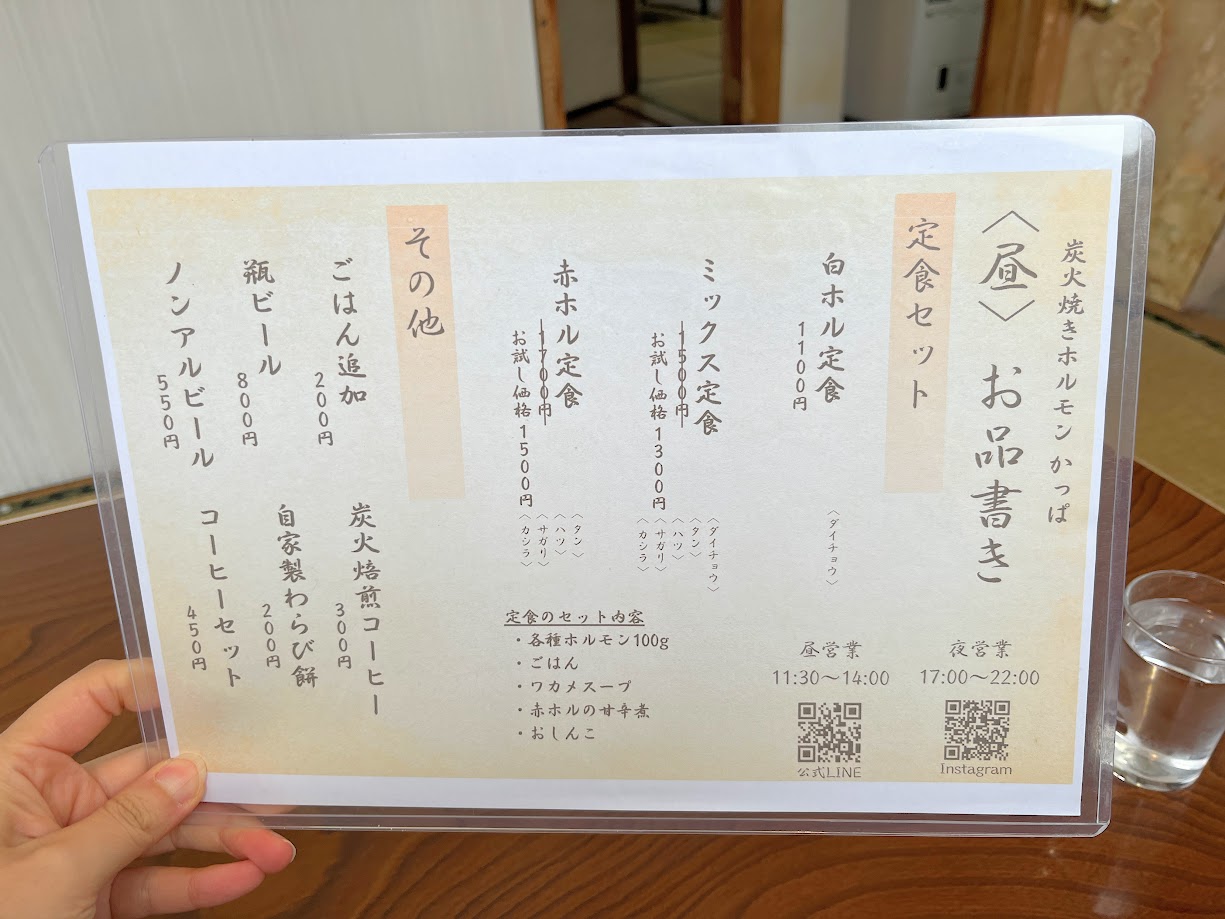 炭火焼きホルモン かっぱ
〈昼〉 お品書き
定食セット
白ホル定食
1100円
〈ダイチョウ〉
ミックス定食
1500円
お試し価格1300円
〈ダイチョウ〉
〈タン〉
〈ハツ〉
〈サガリ〉
〈カシラ〉
赤ホル定食
1700円
お試し価格1500円
〈タン〉
〈ハツ〉
〈サガリ〉
〈カシラ〉
定食のセット内容
・各種ホルモン100g
・ごはん
・ワカメスープ
・赤ホルの甘辛煮
・おしんこ
夜営業
17:00〜22:00
Instagram
昼営業
11:30〜14:00
公式LINE
その他
ごはん追加
200円
瓶ビール
800円
ノンアルビール
550円
炭火焙煎コーヒー
300円
自家製わらび餅
200円
コーヒーセット
450円